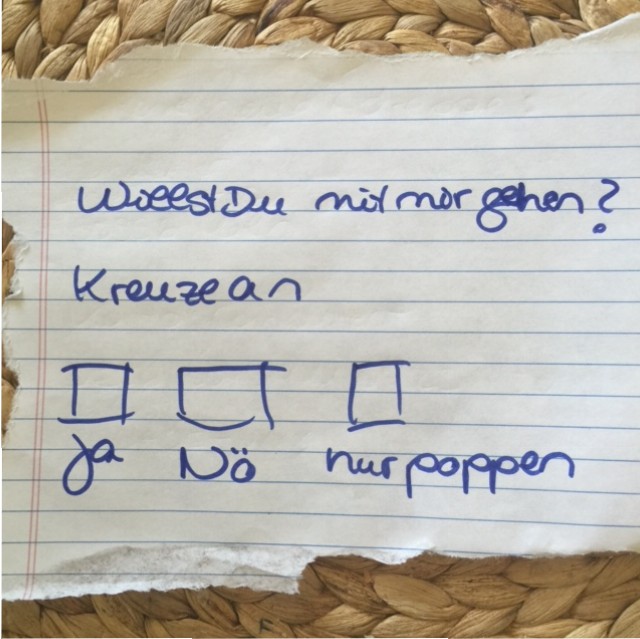 Willst Du mit mir gehen?
Kreuze an
ja Nö nur poppen